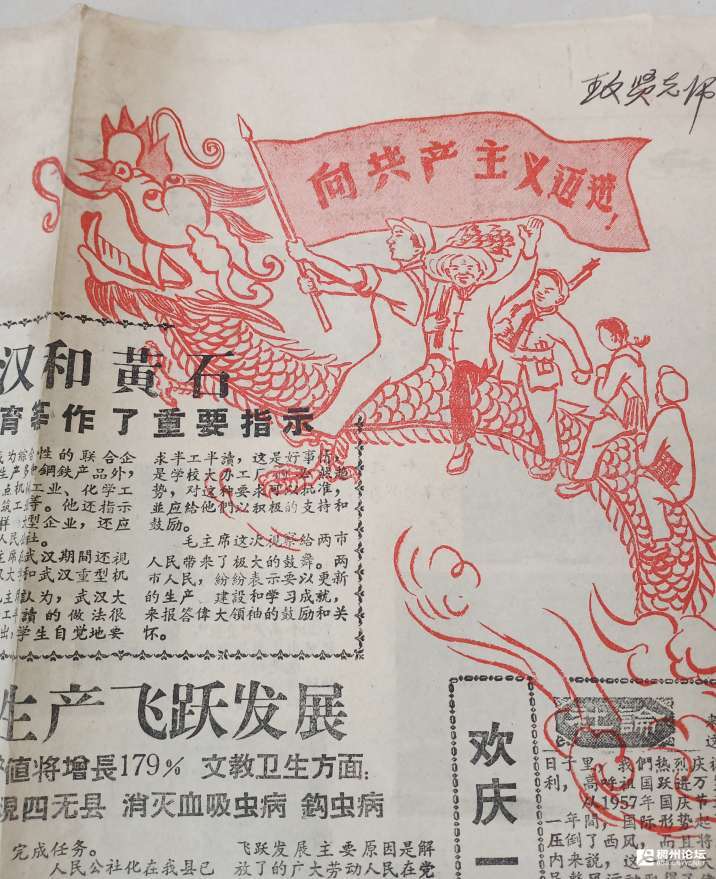 向共产主义迈进！
汉和黄石
育等作了重要指示
成为综合性的联合企
生产多种钢铁产品外，
点机械工业、化学工
筑工业等。他还指示
样大型企业，还应
人民公社。
主席在武汉期間还视
汉大学和武汉重型机
毛主席认为，武汉大
工半讀的做法很
出，学生自觉地要
求半工半讀，这是好事情，
是学校大办工厂
势，对这种要求可以批准，
並应给他們以积极的支持和
鼓励。
毛主席这次视察给两市
人民带来了极大的鼓舞。两
市人民，纷纷表示要以更新
的生产、建設和学习成就，
来报答偉大领袖的鼓励和关
怀。
生产飞跃发展
值将增長179% 文教卫生方面：
現四无县 消灭血吸虫病 鈎虫病
完成任务。
人民公社化在我县已
飞跃发展主要原因是解
放了的广大劳动人民在党
欢庆
日子里，我們热烈庆祝
利，高呼祖国跃进万
从1957年国庆节
一年間，国际形势起
压倒了西风，而且将
内来说，这
稠州论坛